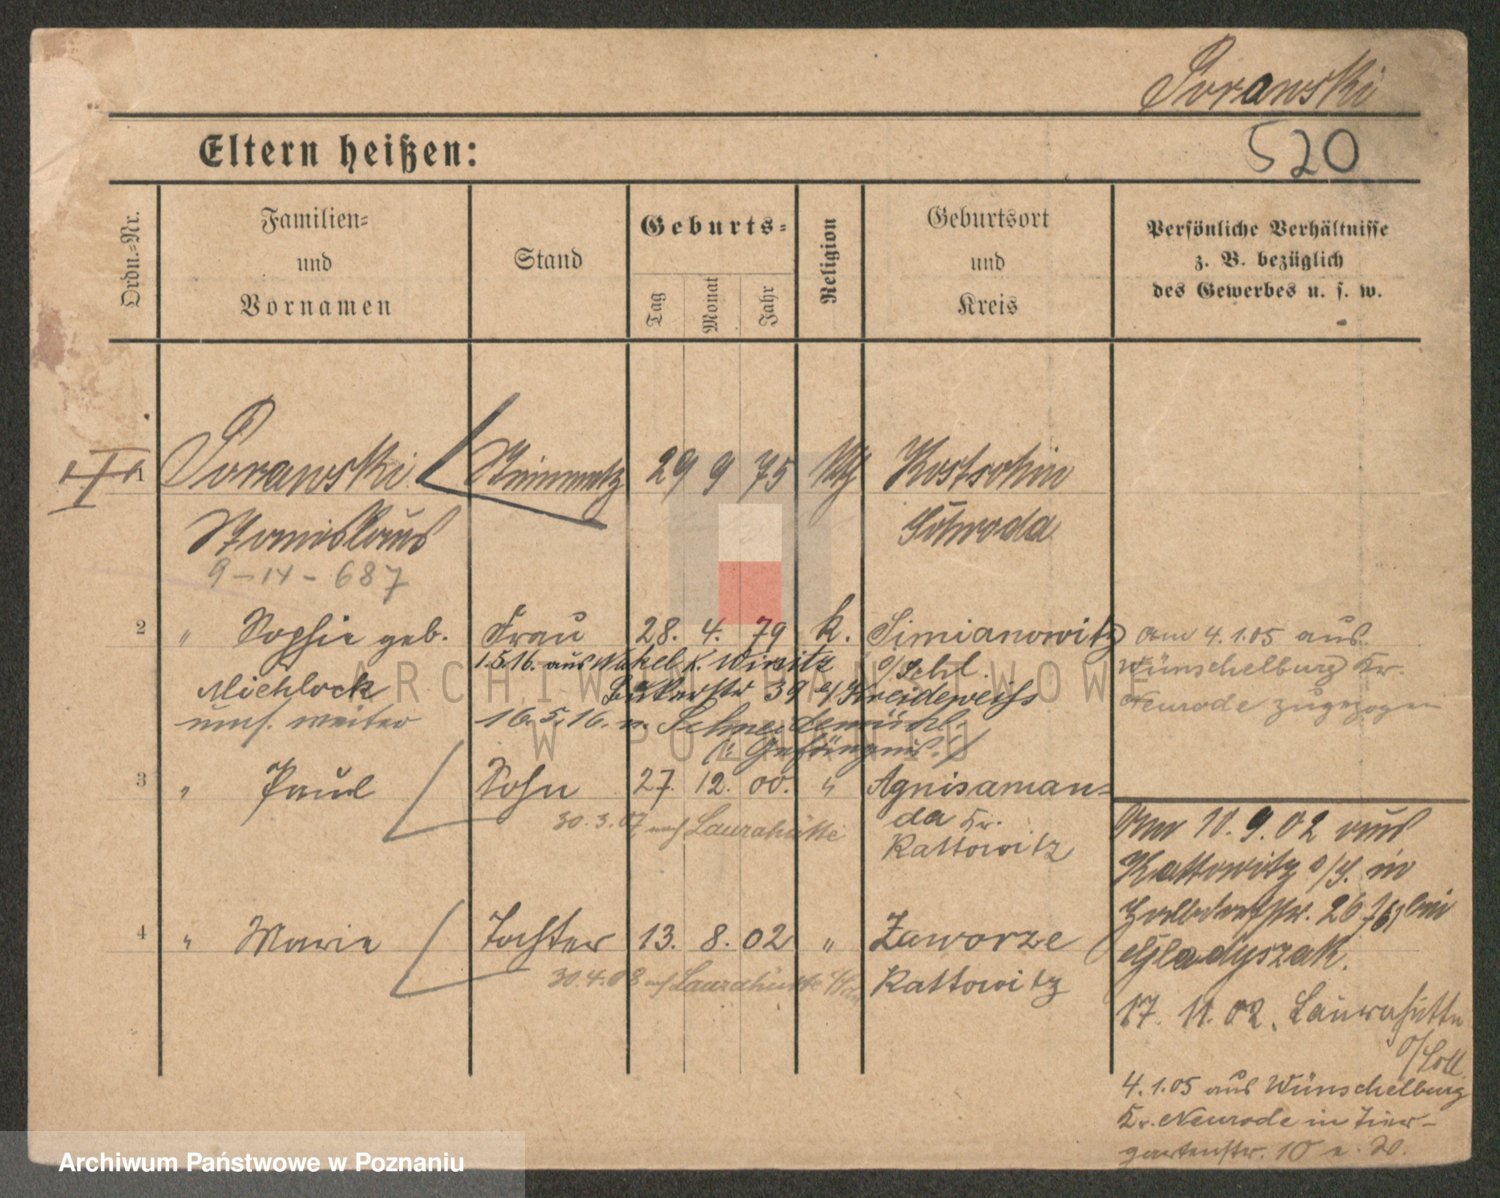 Sorawski
520
Eltern heißen:
Ordn.-Nr.
Familien-
und
Vornamen
Stand
Geburts-
Tag
Monat
Jahr
Religion
Geburtsort
und
Kreis
Persönliche Verhältnisse
z. B. bezüglich
des Gewerbes u. s. w.
1 Sorawski Steinmetz 29 9 75 Kostschin
Stanislaus Schroda
9-14-687
2 " Sophie geb. Frau 28. 4. 79 k. Simianowitz
15.5.16. aus Nakel K. Wirsitz o/Schl.
Michlock 39 b/ Kreideweiss
umf. weiter 16.5.16. n. Schneidemühl
(i. Gefängnis.)
am 4.1.05 aus
Wünschelburg Kr.
Neurode zugezogen
3 " Paul Sohn 27. 12. 00. " Agnisaman-
da Kr.
30.3.07 nach Laurahütte
Kattowitz
4 " Marie Tochter 13. 8. 02 " Zaworze
30.4.08 nach Laurahütte
Kattowitz
Am 11.9.02 aus
Kattowitz o/S. in
26 bei
Gladyszak.
17. 11. 02. Laurahütte
o/Schl.
4.1.05 aus Wünschelburg
Kr. Neurode in Tier-
gartenstr. 10 e. 20.
ARCHIWUM PAŃSTWOWE
W POZNANIU
Archiwum Państwowe w Poznaniu